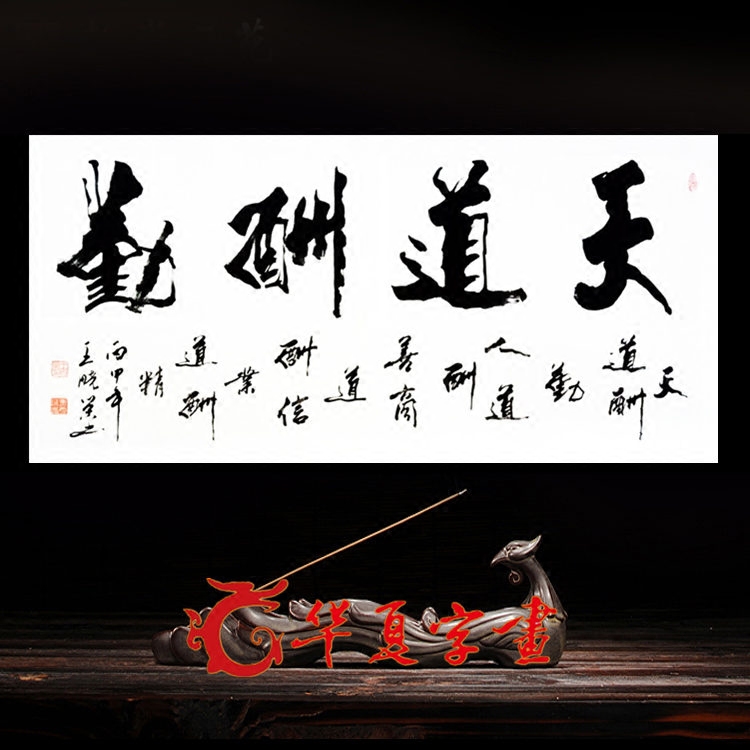 天道酬勤
天
道酬
勤
人道
酬
善商
道
酬信
業
道酬
精
丙申年
王晓
华夏字畫